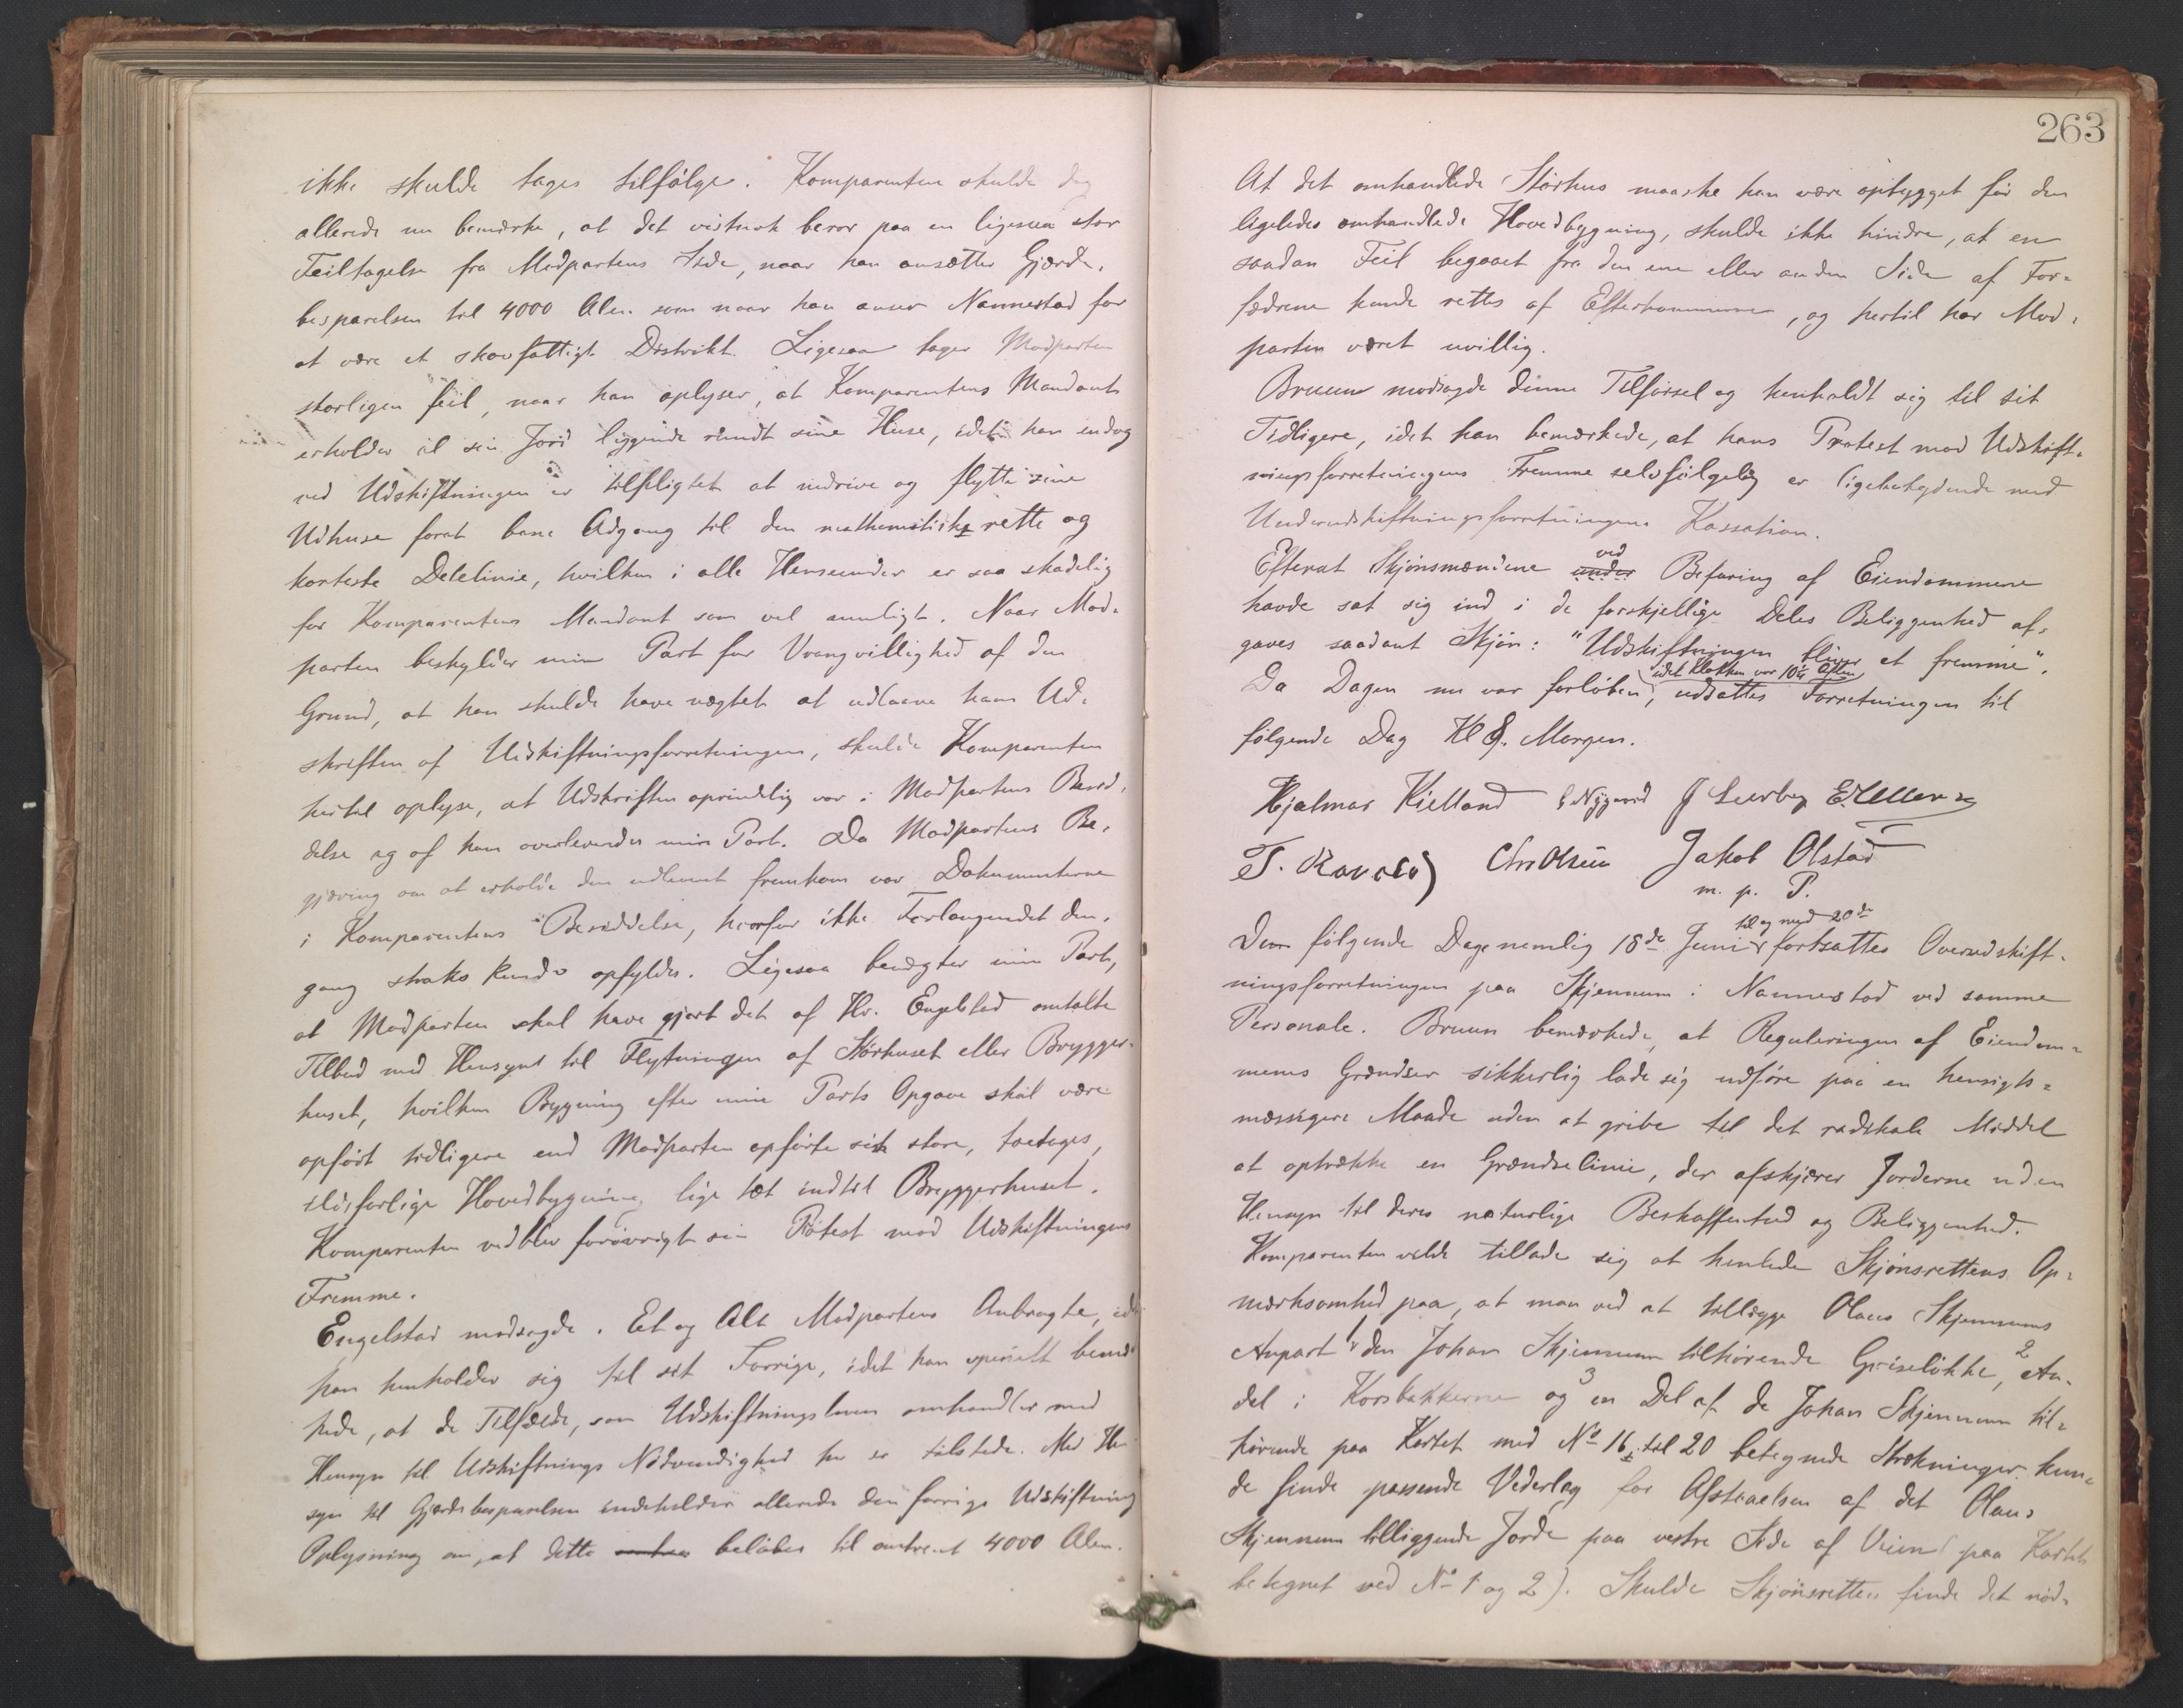 ikke skulde tages tilfølge. Komparenten skulde dog
allerede nu bemærke, at det vistnok beror paa en ligesaa stor
Feiltagelse fra Modpartens Side, naar han ansætter Gjærde-
besparelsen til 4000 Alen som naar han anser Nannestad for
at være et skovfattigt Distrikt. Ligesaa tager Modparten
storligen feil, naar han oplyser, at Komparentens Mandant
erholder al sin Jord liggende rundt sine Huse, idet han endog
ved Udskiftningen er tilpligtet at nedrive og flytte sine
Udhuse forat bane Adgang til den mathematiske rette og
korteste Delelinie, hvilken i alle Henseender er saa skadelig
for Komparentens Mandant som vel muligt. Naar Mod-
parten beskylder min Part for Vrangvillighed af den
Grund, at han skulde have nægtet at udlaane ham Ud-
skriften af Udskiftningsforretningen, skulde Komparenten
hertil oplyse, at Udskriften oprindelig var i Modpartens Besid-
delse og af ham overleveredes min Part. Da Modpartens Be-
gjæring om at erholde den udlaant fremkom var Dokumenterne
i Komparentens Besiddelse, hvorfor ikke Forlangendet den-
gang straks kunde opfyldes. Ligesaa benægter min Part,
at Modparten skal have gjort det af Hr. Engelstad omtalte
Tilbud med Hensyn til Flytningen af Størhuset eller Brygger-
huset, hvilken Bygning efter min Parts Opgave skal være
opført tidligere end Modparten opførte sin store, toetages,
ildsfarlige Hovedbygning lige tæt indtil Bryggerhuset.
Komparenten vedblev forøvrigt sin Protest mod Udskiftningens
Fremme.
Engelstad modsagde. Et og Alt Modpartens Anbragte, idet
han henholder sig til sit Forrige, idet han specielt bemær-
kede, at de Tilfælde, som Udskiftningsloven omhandler med
Hensyn til Udskiftnings Nødvendighed her er tilstede. Med Hen-
syn til Gjærdebesparelsen indeholder allerede den forrige Udskiftning
Oplysning om, at dette beløber til omtrent 4000 Alen.
263
At det omhandlede Størhus maaske kan være opbygget før den
ligeledes omhandlede Hovedbygning, skulde ikke hindre, at en
saadan Feil begaaet fra den ene eller anden Side af For-
fædrene kunde rettes af Efterkommerne, og hertil har Mod-
parten været uvillig.
Bruun modsagde denne Tilførsel og henholdt sig til sit
Tidligere, idet han bemærkede, at hans Protest mod Udskift-
ningsforretningens Fremme selvfølgelig er ligebetydende med
Underudskiftningsforretningens Kassation.
Efterat Skjønsmændene under ved Befaring af Eiendommene
havde sat sig ind i de forskjellige Deles Beliggenhed af-
gaves saadant Skjøn: "Udskiftningen bliver at fremme".
Da Dagen nu var forløben, idet Klokken var 10¼ Aften udsattes Forretningen til
følgende Dag Kl 8. Morgen.
Hjalmar Kielland G Nygaard J Leerberg E. Ellery
T. Ravold Chr Olsen Jakob Olstad
m. p. P.
Den følgende Dage nemlig 18de Juni til og med 20de fortsattes Overudskift-
ningsforretningen paa Skjennum i Nannestad ved samme
Personale. Bruun bemærkede, at Reguleringen af Eiendom-
mens Grændser sikkerlig lade sig udføre paa en hensigts-
mæssigere Maade uden at gribe til det radikale Middel
at optrække en Grændselinie, der afskjærer Jorderne uden
Hensyn til deres naturlige Beskaffenhed og Beliggenhed.
Komparenten vilde tillade sig at henlede Skjønsrettens Op-
mærksomhed paa, at man ved at tillægge Olaus Skjennums
Anpart 1 den Johan Skjennum tilhørende Griseløkke, 2 An-
del i Korsbakkerne og 3 en Del af de Johan Skjennum til-
hørende paa Kartet med No 16 til 20 betegnede Strækninger kun-
de finde passende Vederlag for Afstaaelsen af det Olaus
Skjennum tilliggende Jorde paa vestre Side af Veien (paa Kartet
betegnet ved No 1 og 2). Skulde Skjønsretten finde det nød-